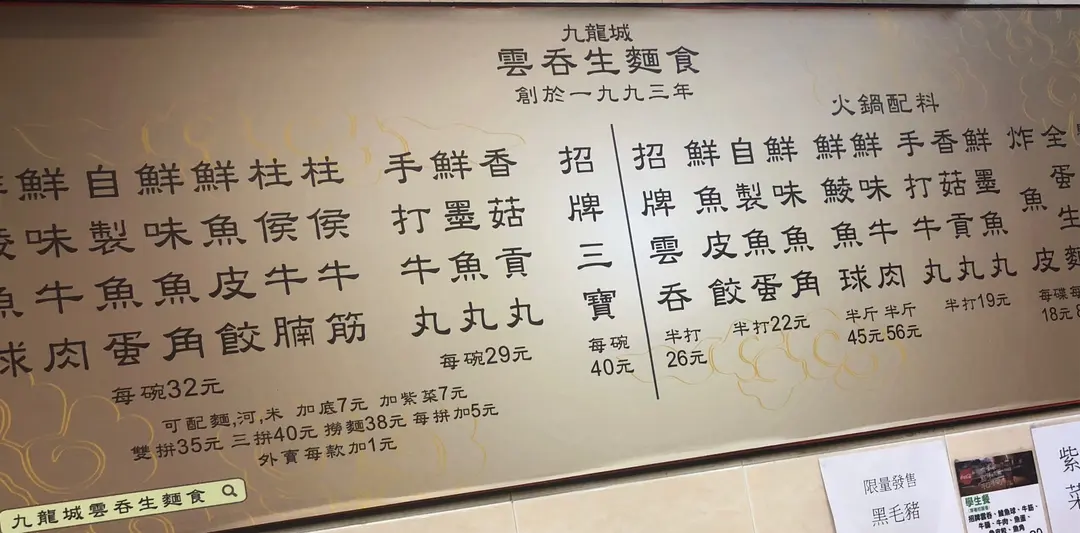 九龍城
雲吞生麵食
創於一九九三年
鮮味牛肉
自製魚蛋
鮮味魚角
鮮魚皮餃
柱侯牛腩
柱侯牛筋
每碗32元
手打牛丸
鮮墨魚丸
香菇貢丸
每碗29元
招牌三寶
每碗
40元
可配麵,河,米 加底7元 加紫菜7元
雙拼35元 三拼40元 撈麵38元 每拼加5元
外賣每款加1元
九龍城雲吞生麵食
火鍋配料
招牌雲吞
半打
26元
鮮魚皮餃
自製魚蛋
鮮味魚角
半打22元
鮮鯪魚球
半斤
45元
鮮味牛肉
半斤
56元
手打牛丸
香菇貢丸
鮮墨魚丸
半打19元
炸魚皮
每碟
18元
全蛋生麵
限量發售
黑毛豬
學生餐
招牌雲吞、鯪魚球、牛筋、
牛腩、牛肉、魚蛋、
紫
菜